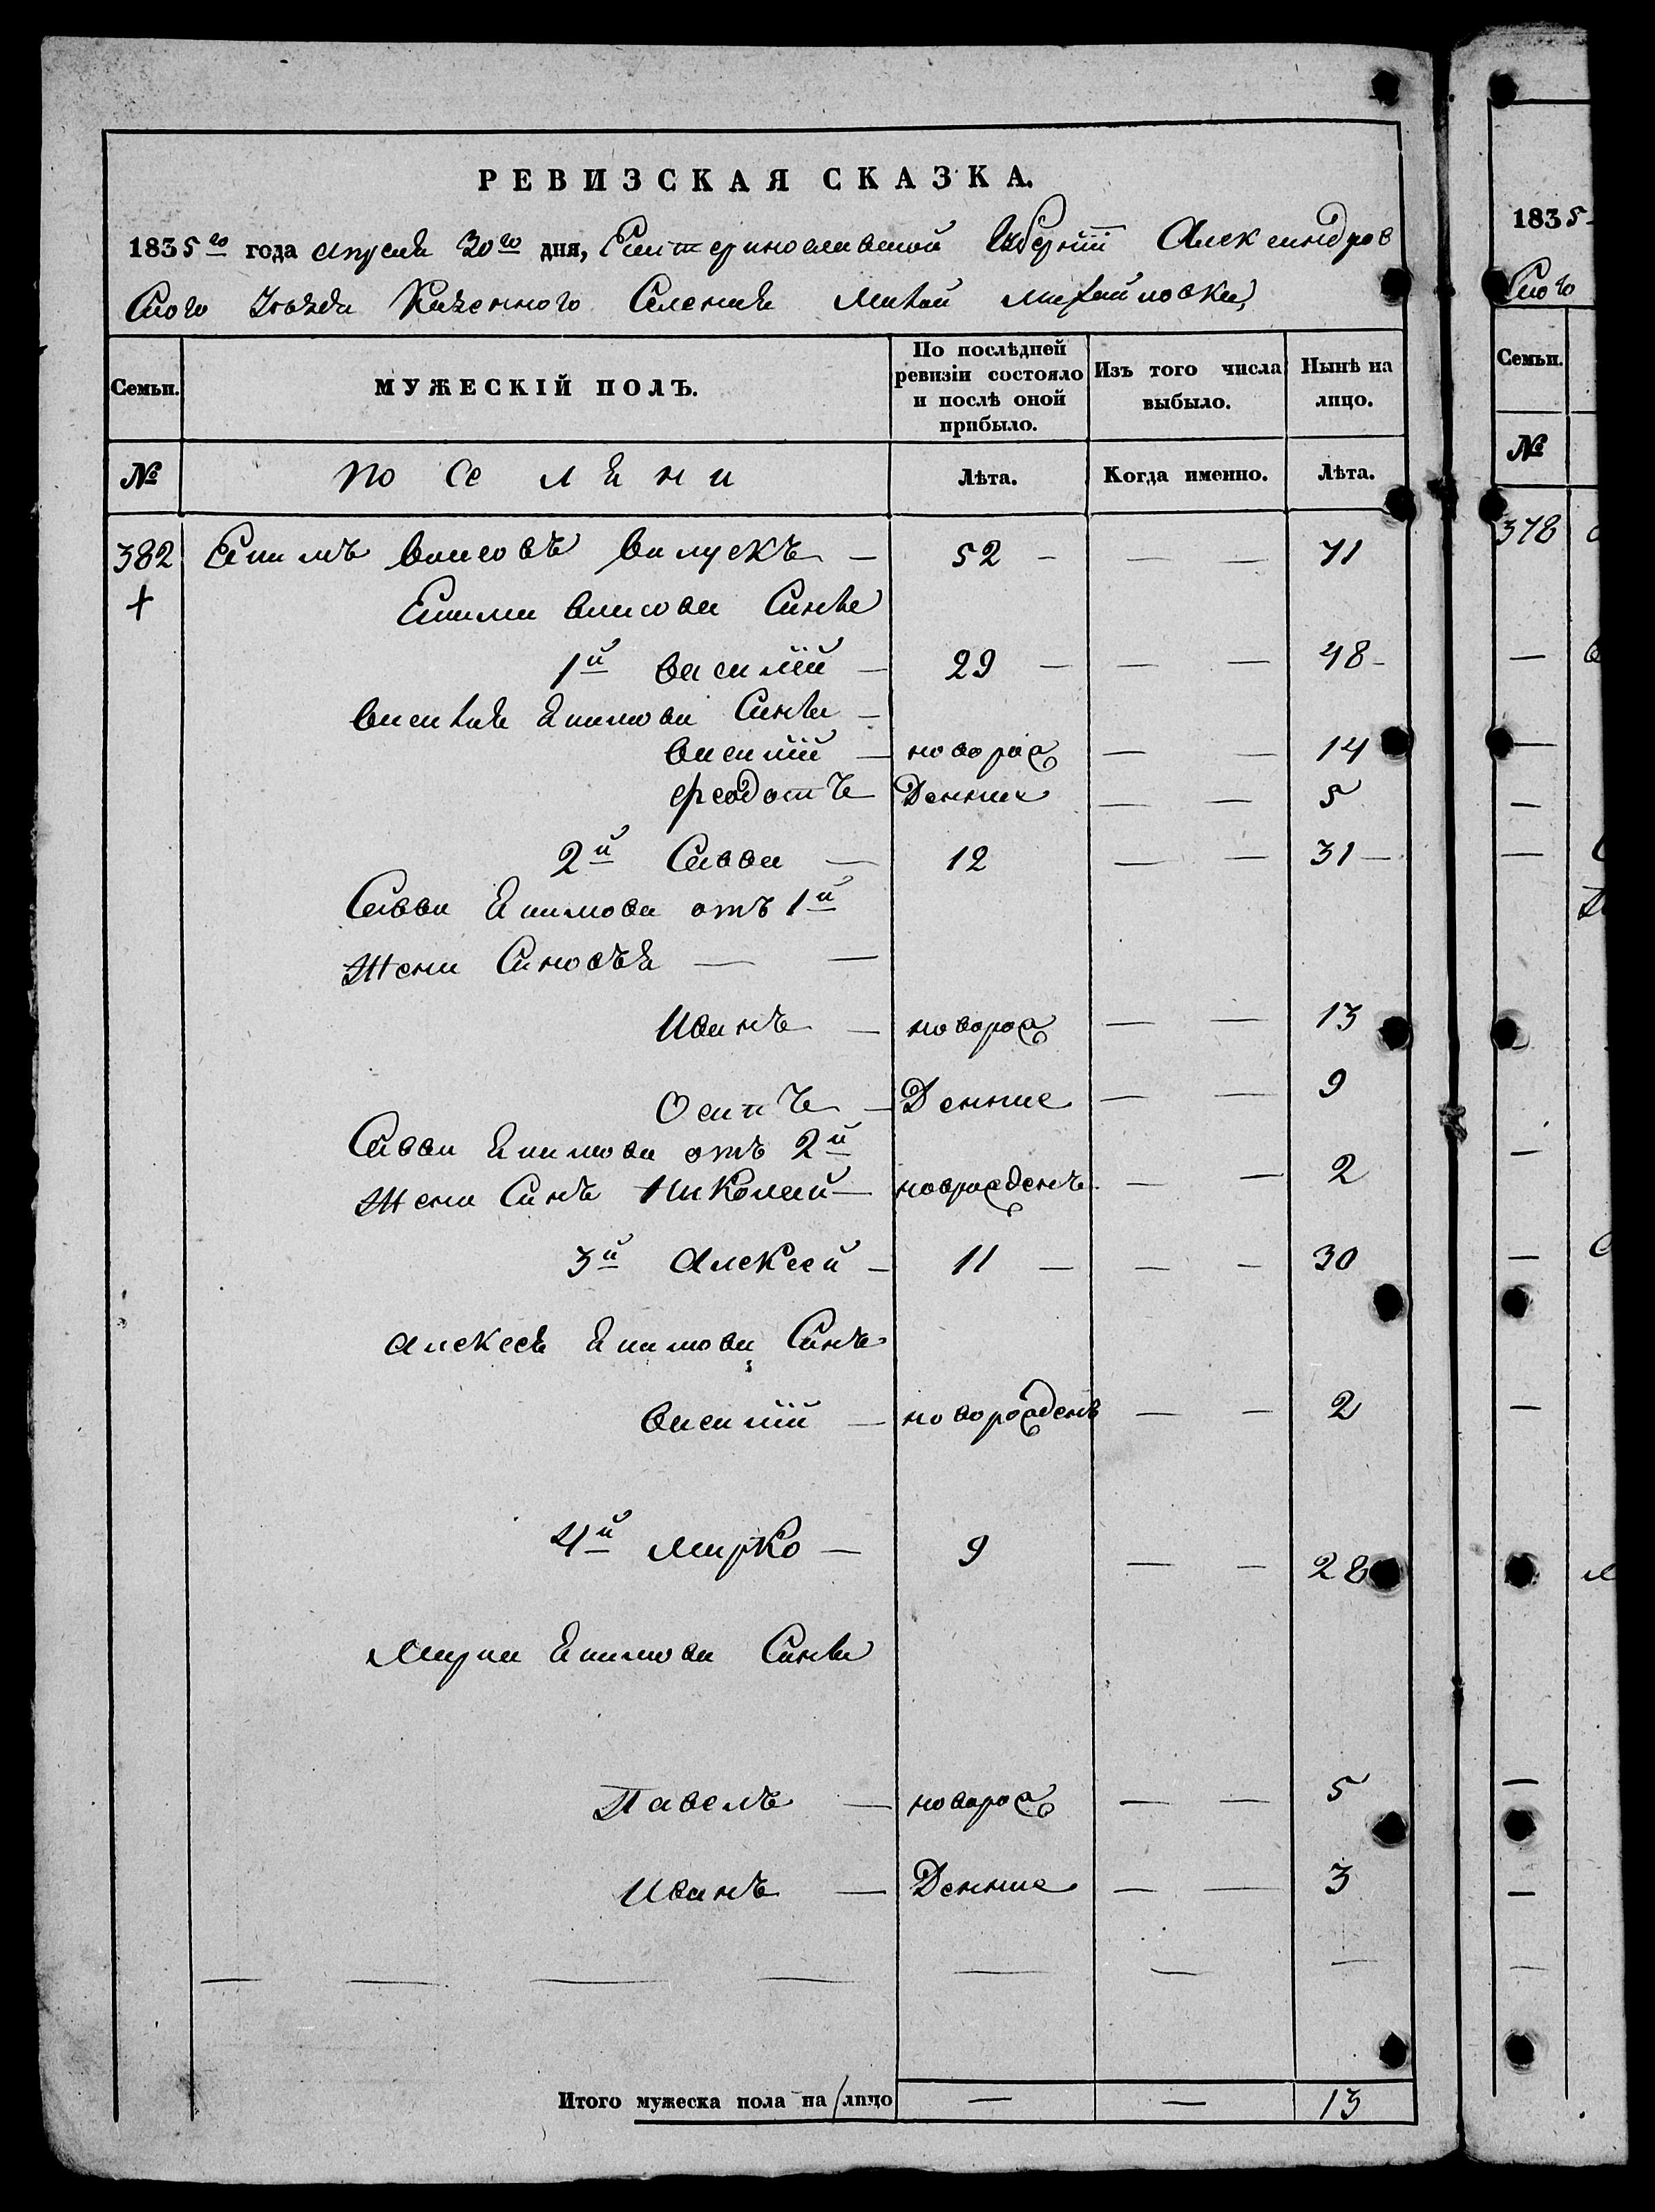 РЕВИЗСКАЯ СКАЗКА.
1835го года апреля 30го дня, Екатеринославской Губернiи Александров
скаго Уѣзда Казенного Селения Малой Михайловки,
Семьи. МУЖЕСКIЙ ПОЛЪ. По послѣдней ревизiи состояло и послѣ оной прибыло. Изъ того числа выбыло. Нынѣ на лицо.
№ Поселяни Лѣта. Когда именно. Лѣта.
382 Екимъ — 52 — — — 71
+ Екима Синъи
1й василiй — 29 — — — 48 —
василия Екимова Синъи —
василiй — новорож — — 14
феодотъ денние — — 5
2й Савва — 12 — — 31 —
Савви Екимова отъ 1й
жени Синовъя — —
Иванъ — новорож — — 13
Осипъ — Денние — — 9
Савви Екимова отъ 2й
жени Синъ Николай — новрожденъ — — 2
3й Алексей — 11 — — — 30
алексея Екимова Синъ
василiй — новорожденъ — — 2
4й Марко — 9 — — 28
Марка Екимова Синъи
Павелъ — новорож — — 5
Иванъ — Денние — — 3
— — — — — — —
Итого мужеска пола на лицо — — 13
1835
Скаго
Семьи.
№
378